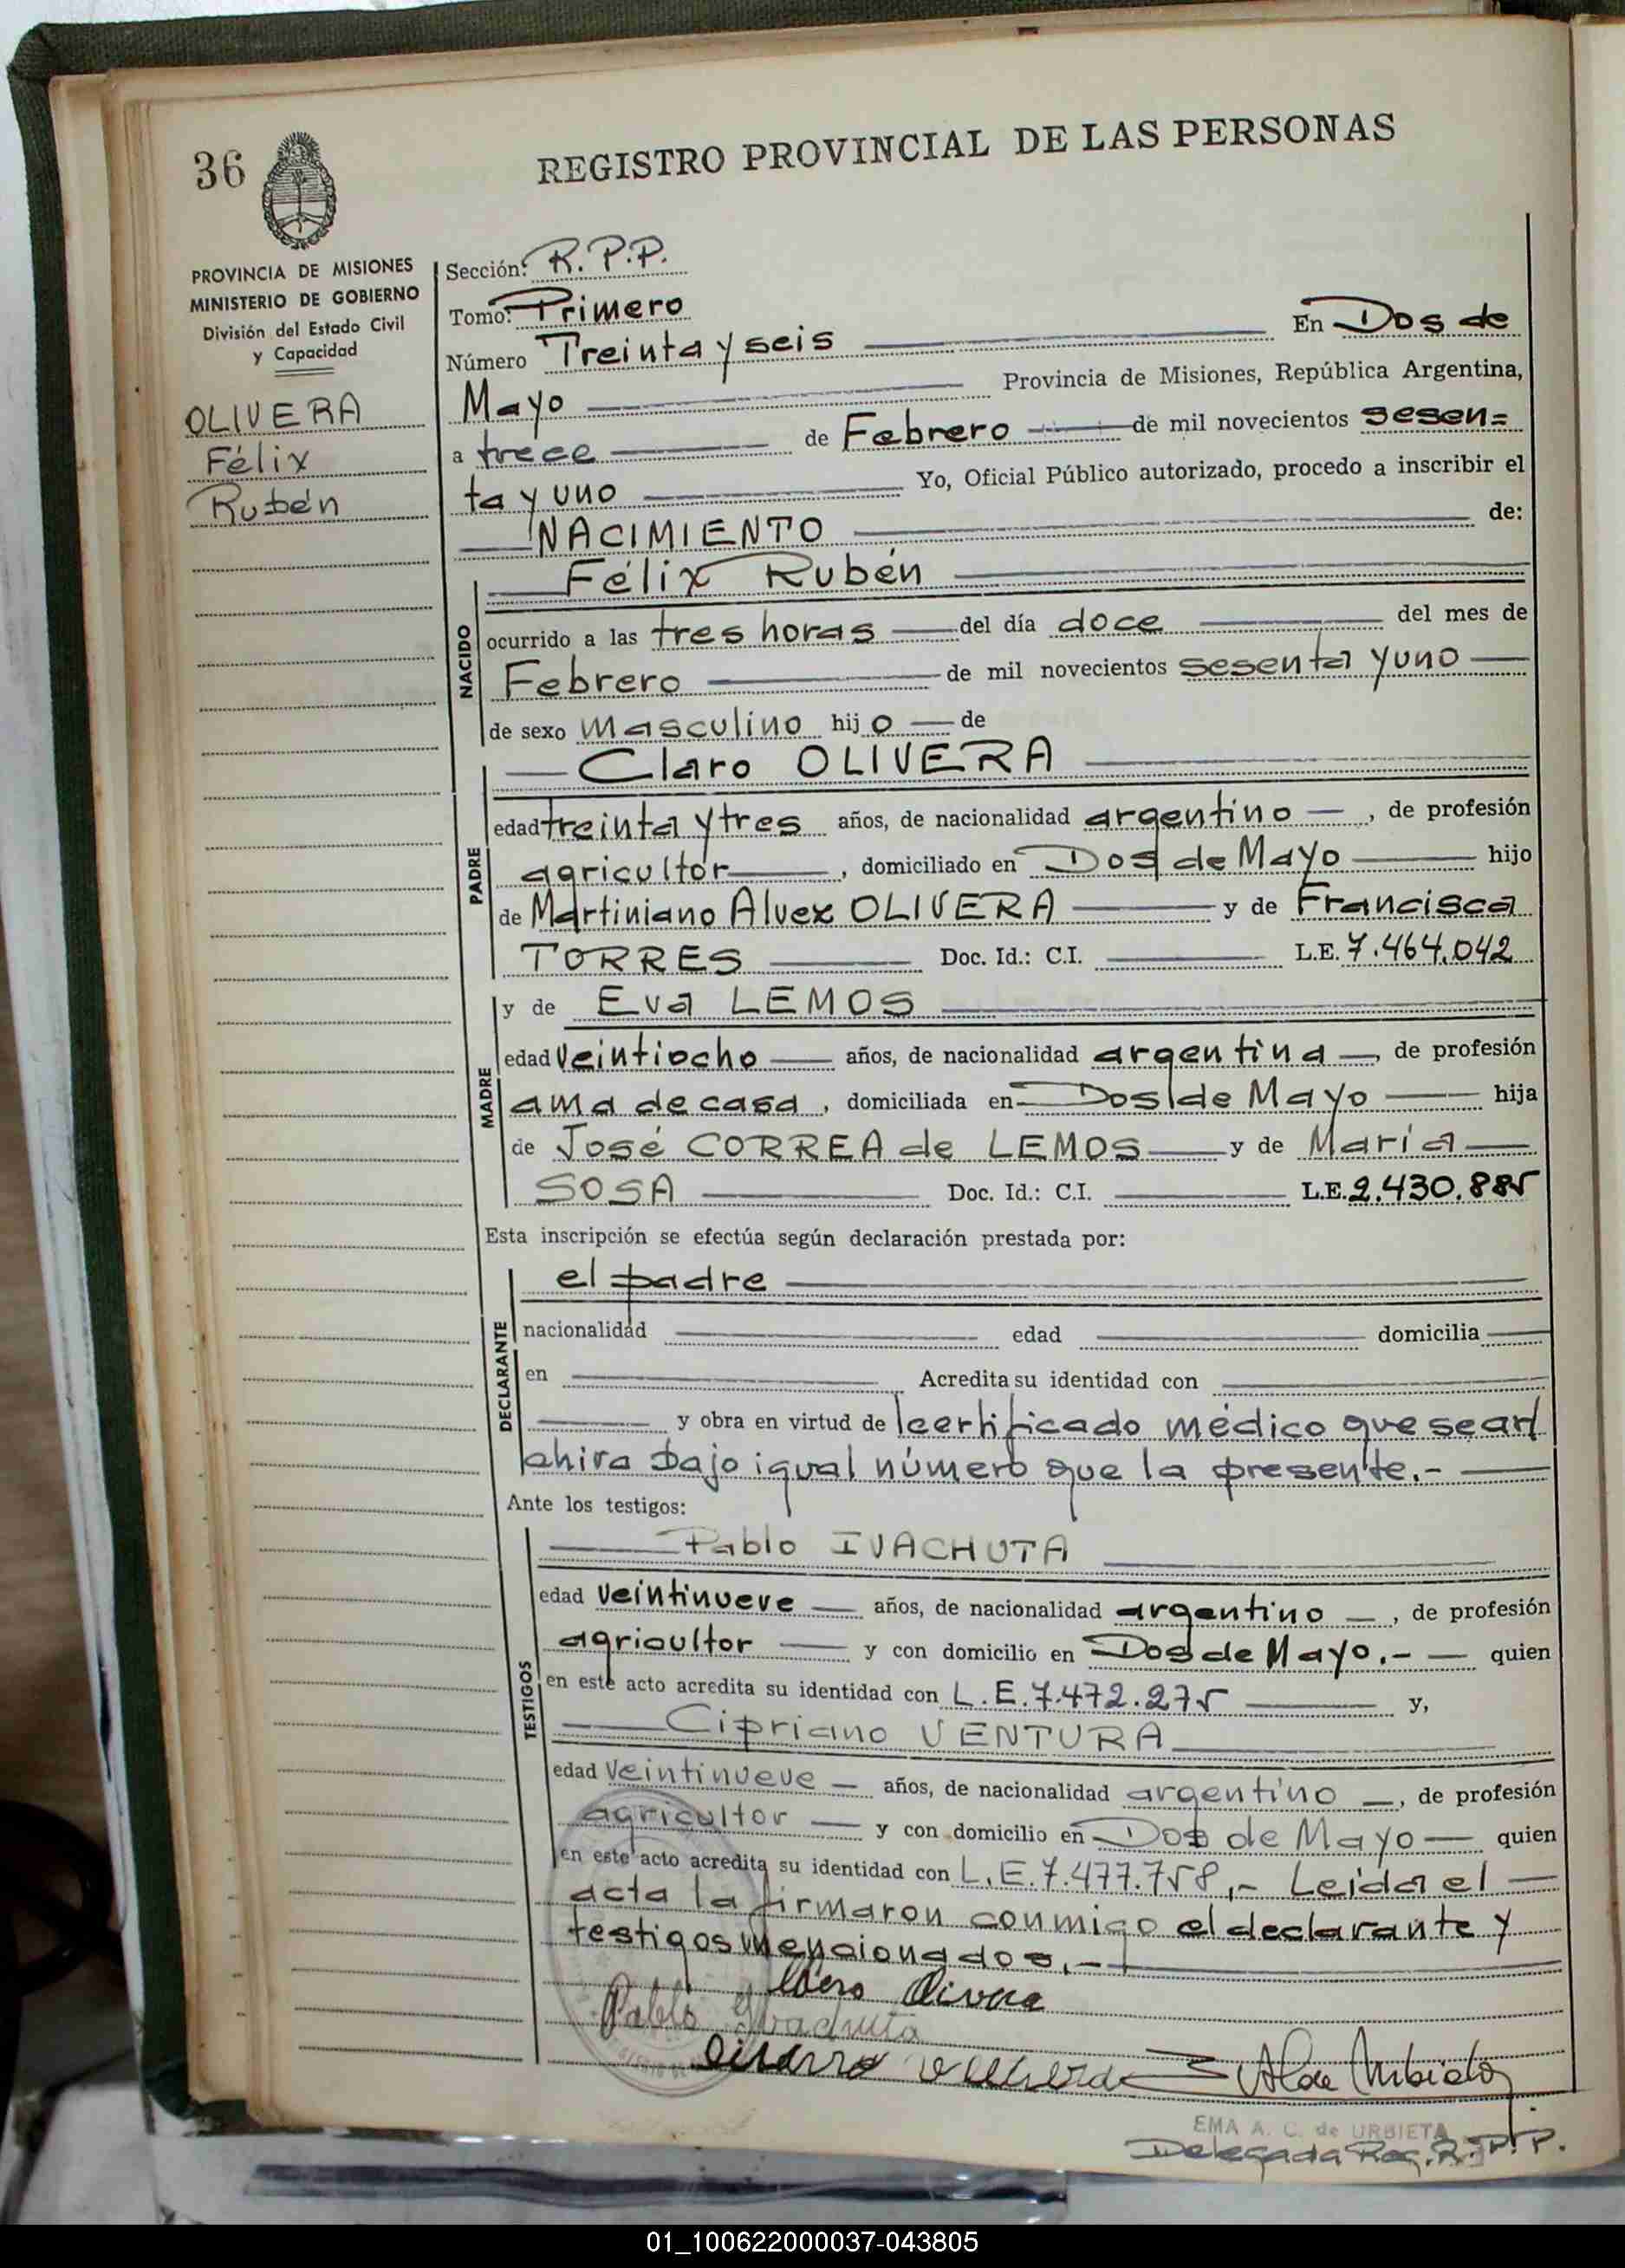 36
REGISTRO PROVINCIAL DE LAS PERSONAS
PROVINCIA DE MISIONES
MINISTERIO DE GOBIERNO
División del Estado Civil
y Capacidad
OLIVERA
Félix
Rubén
Sección: R.P.P.
Tomo: Primero
Número Treinta y seis En Dos de
Mayo Provincia de Misiones, República Argentina,
a trece de Febrero de mil novecientos sesen=
ta y uno Yo, Oficial Público autorizado, procedo a inscribir el
NACIMIENTO de:
NACIDO
Félix Rubén
ocurrido a las tres horas del día doce del mes de
Febrero de mil novecientos sesenta y uno
de sexo masculino hijo de
PADRE
Claro OLIVERA
edad treinta y tres años, de nacionalidad argentino, de profesión
agricultor, domiciliado en Dos de Mayo hijo
de Martiniano Alvez OLIVERA y de Francisca
TORRES Doc. Id.: C.I. L.E. 7.464.042
MADRE
y de Eva LEMOS
edad veintiocho años, de nacionalidad argentina, de profesión
ama de casa, domiciliada en Dos de Mayo hija
de José CORREA de LEMOS y de María
SOSA Doc. Id.: C.I. L.E. 2.430.885
Esta inscripción se efectúa según declaración prestada por:
DECLARANTE
el padre
nacionalidad edad domicilia
en Acredita su identidad con
y obra en virtud de certificado médico que se ar/
chiva bajo igual número que la presente.-
Ante los testigos:
TESTIGOS
Pablo IVACHUTA
edad veintinueve años, de nacionalidad argentino, de profesión
agricultor y con domicilio en Dos de Mayo.- quien
en este acto acredita su identidad con L.E. 7.472.275 y,
Cipriano VENTURA
edad veintinueve años, de nacionalidad argentino, de profesión
agricultor y con domicilio en Dos de Mayo quien
en este acto acredita su identidad con L.E. 7.477.758.- Leida el
acta la firmaron conmigo el declarante y
testigos mencionados.-
Claro Olivera
Pablo Ivachuta
EMA A. C. de URBIETA
Delegada Reg. R.P.P.
01_100622000037-043805